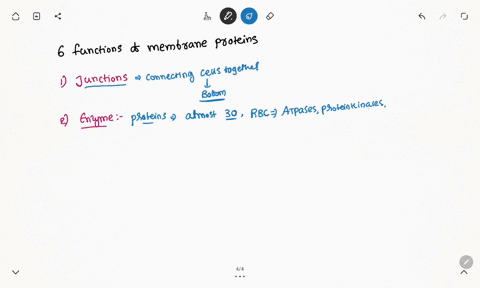 6 functions of membrane proteins
1) Junctions ⇒ connecting cells together
↓
Bottom
2) Enzyme:- proteins ⇒ almost 30, RBC ⇒ Atpases, proteinkinases,
4/4